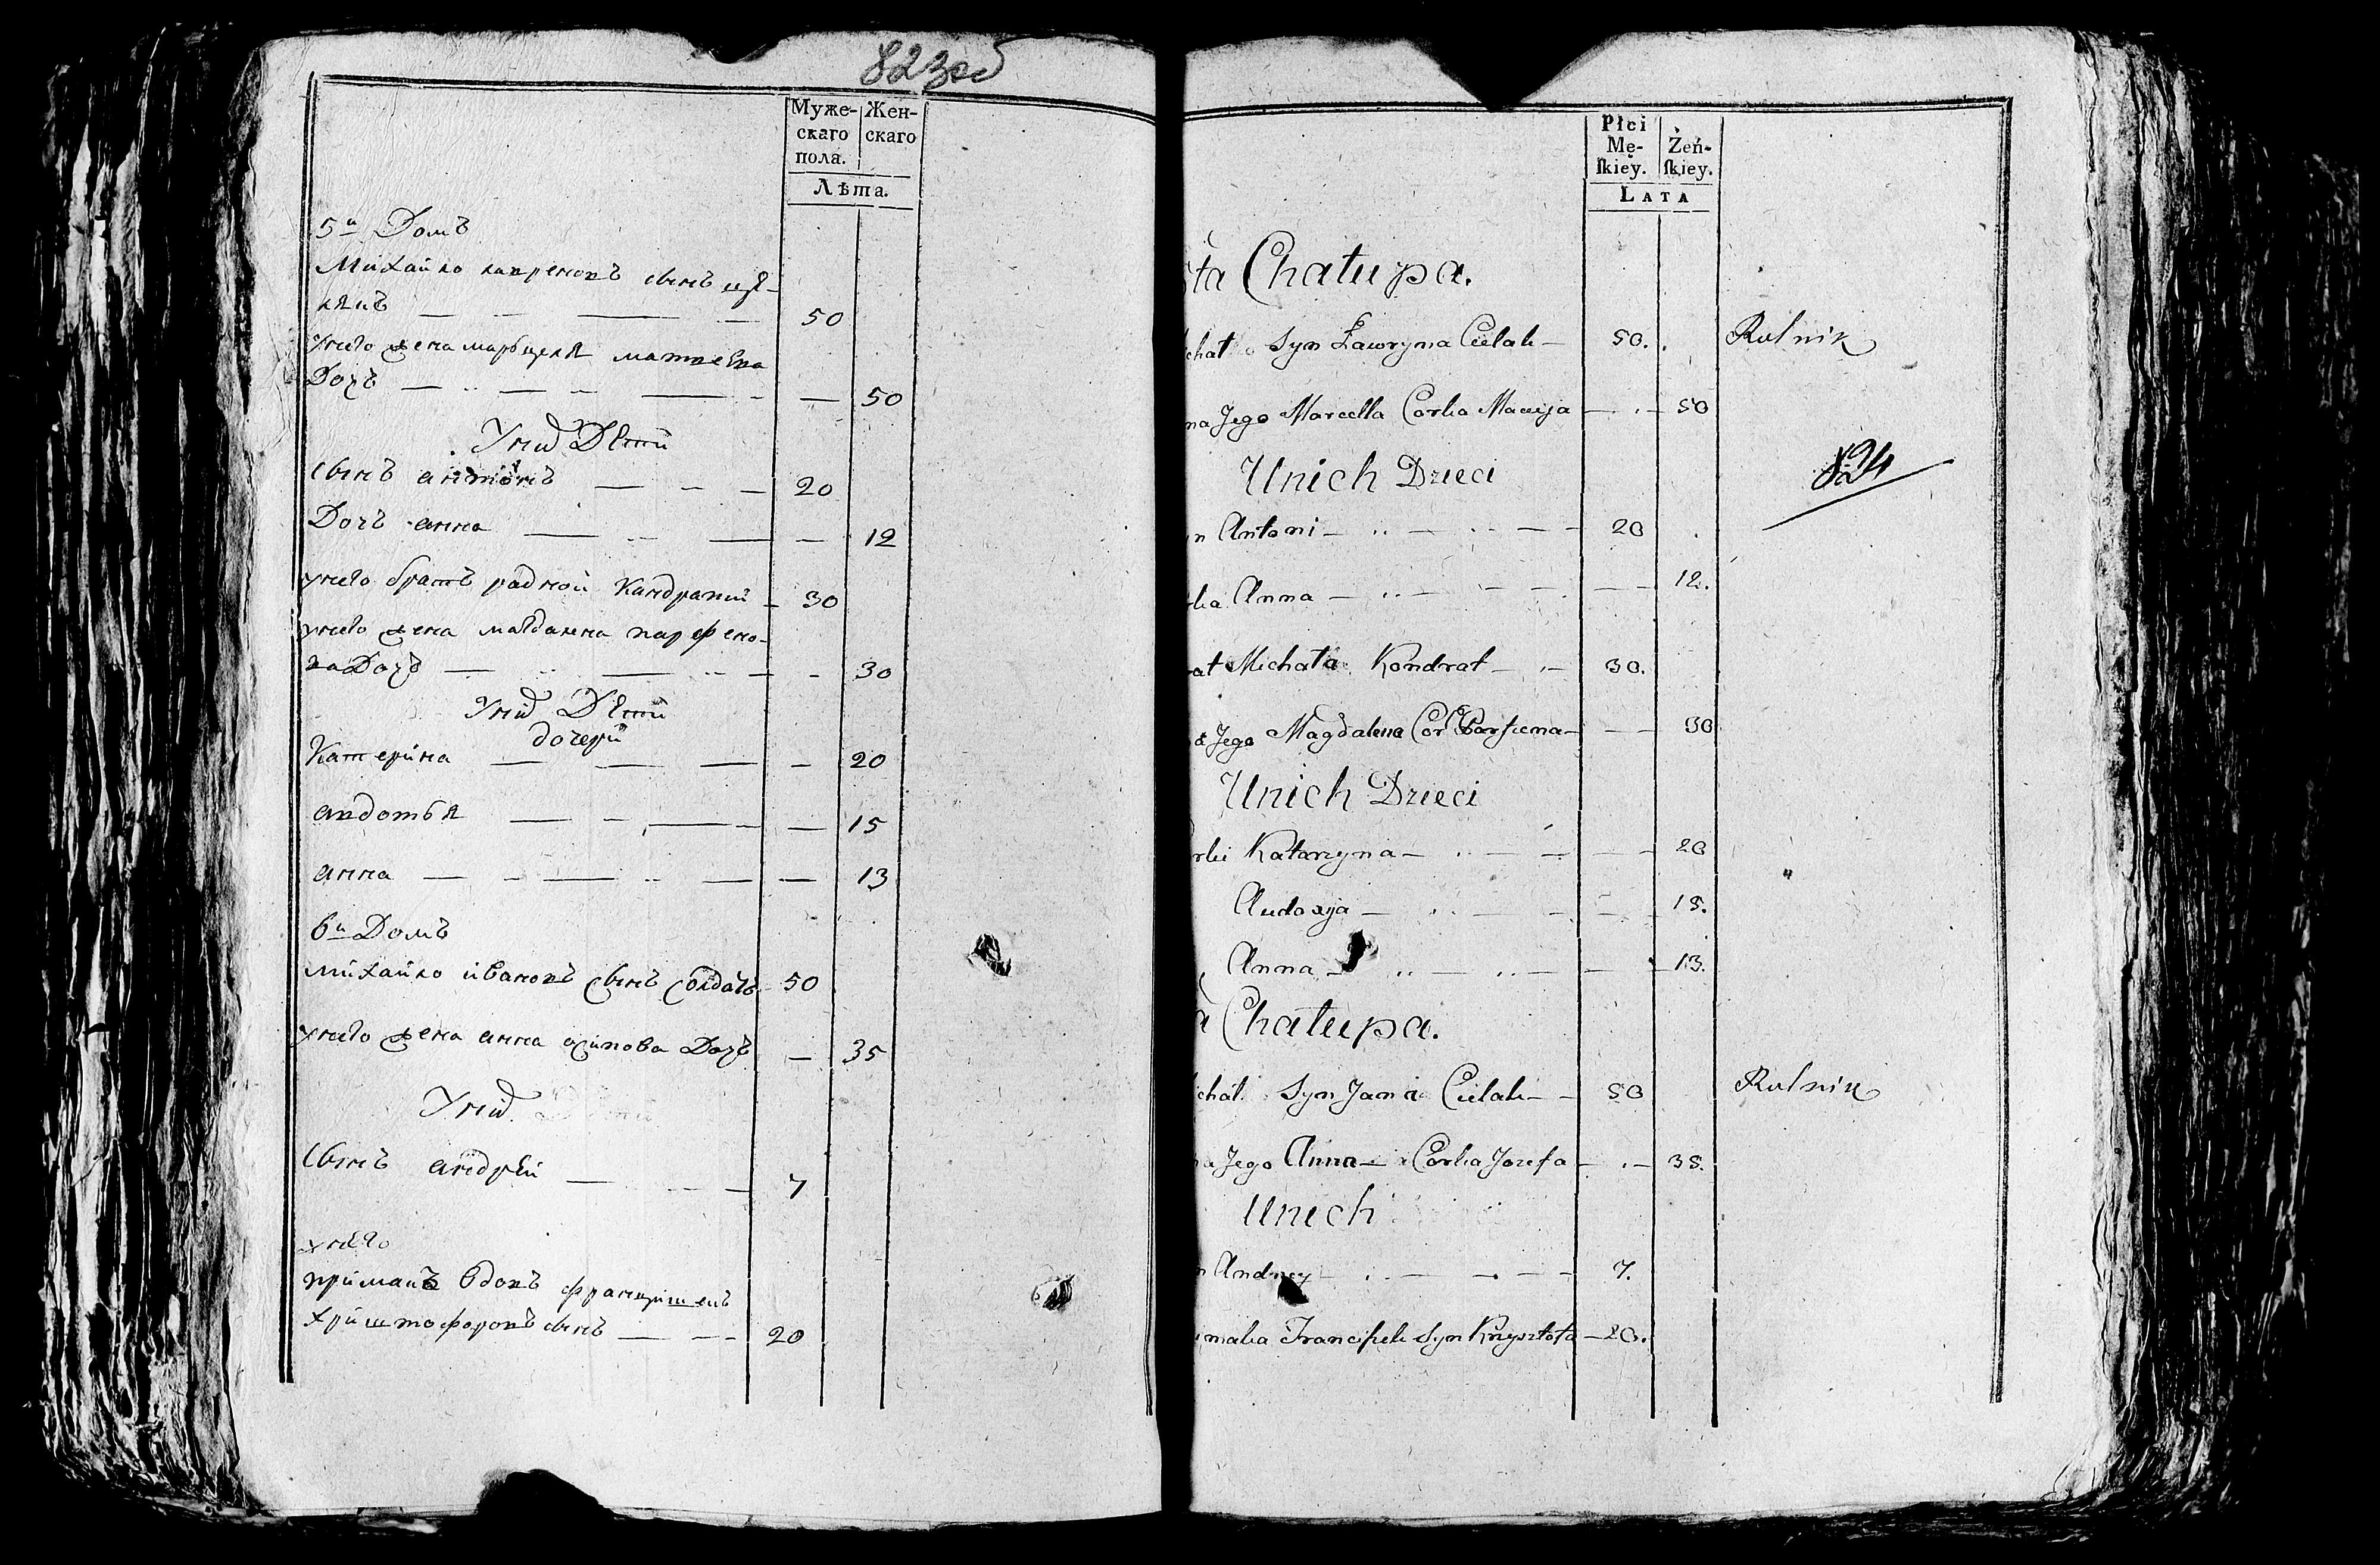 82 зоб
Муже-
скаго
пола.
Жен-
скаго
Лѣта.
5й Домъ
Михайло лавреновъ сынъ цѣ-
лякъ — — — — 50
унего жена марцеля матвеева
Дочъ — — — — — 50
Уних Дети
Сынъ антонъ — — — 20
Дочъ анна — — — — 12
унего братъ радной Кандратий — 30
унего жена магдалена парфено-
ва Дочъ — — — — 30
Уних Дети
дочери
Катерина — — — — 20
авдотья — — — — 15
анна — — — — — 13
6й Домъ
михайло ивановъ сынъ Солдатъ 50
унего жена анна осипова Дочъ — 35
Уних
Сынъ андрей — — — 7
унего
приманъ вдовъ францишекъ
криштофоровъ сынъ — — 20
Płci
Mę-
ſkiey.
Żeń-
ſkiey.
LATA
ta Chałupa.
chał Syn Ławryna Cielak — 50. Rolnik
na Jego Marcella Corka Macieja — 50
Unich Dzieci
824
n Antoni — — — 20
ka Anna — — — — 12.
at Michała Kondrat — 30.
a Jego Magdalena Cor Parfiena — — 30
Unich Dzieci
rki Katarzyna — — — 20
Audoxija — — — 15.
Anna — — — — 13.
a Chałupa.
chał Syn Jana Cielak — 50 Rolnik
a Jego Anna — Corka Jozefa — 35.
Unich
n Andrzey — — — 7.
imaka Franciszek Syn Krzysztofa — 20.